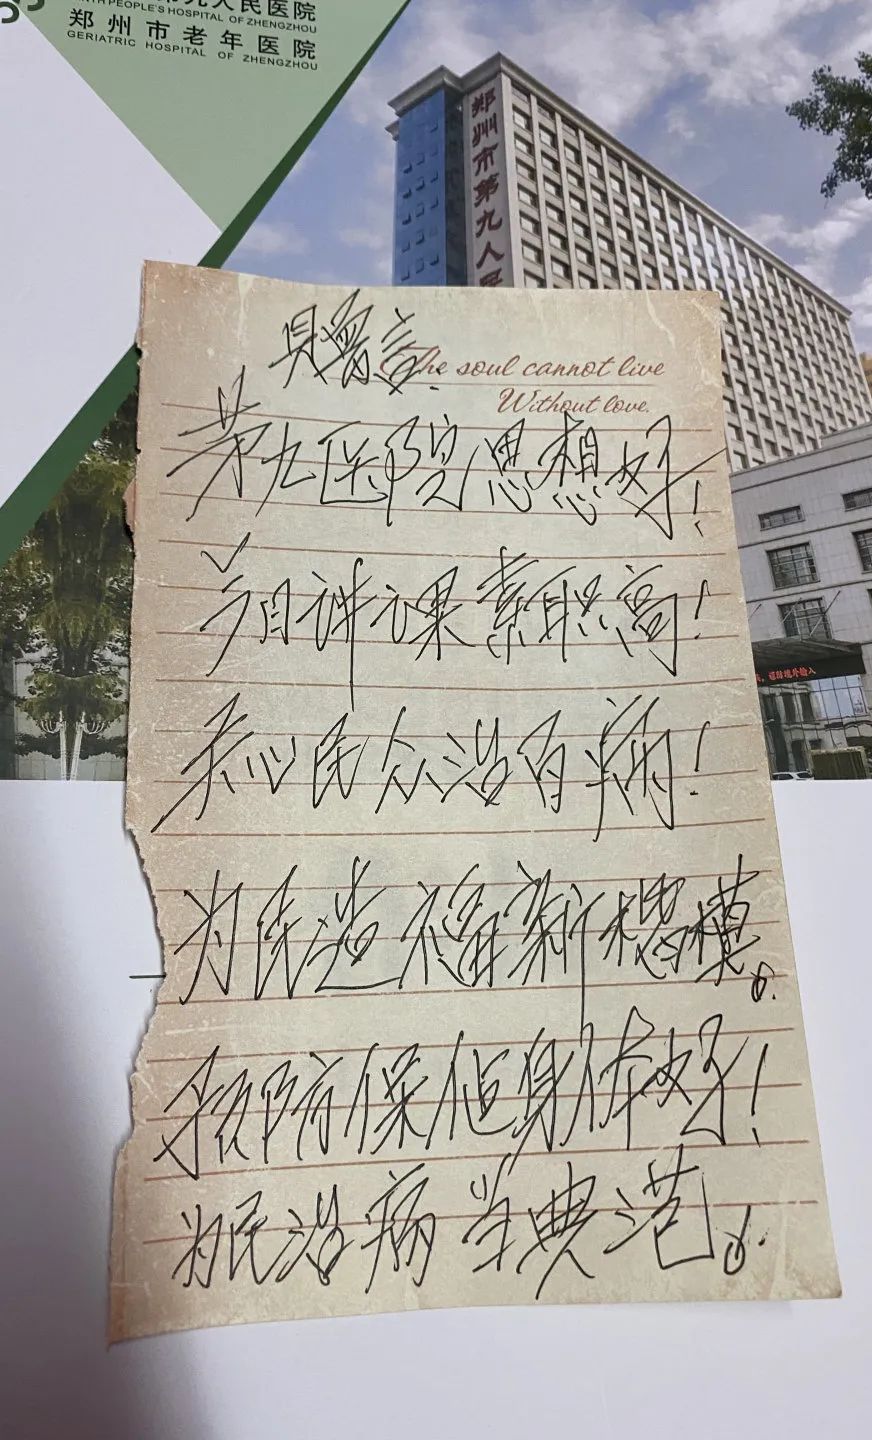 第九人民医院
NINTH PEOPLE'S HOSPITAL OF ZHENGZHOU
郑州市老年医院
GERIATRIC HOSPITAL OF ZHENGZHOU
郑州市第九人民
The soul cannot live
Without love.
留言
第九医院思想好!
今日讲课素职高!
关心民众治百病!
为民造福新楷模。
预防保健身体好!
为民治病当典范。